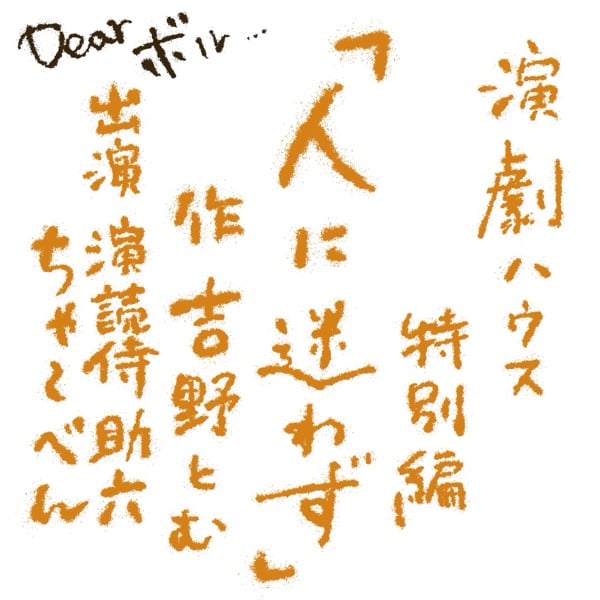 Dear ボル…
演劇ハウス
特別編
「人に迷わず」
作 吉野とむ
出演 演読侍 助六
ちゃくべん